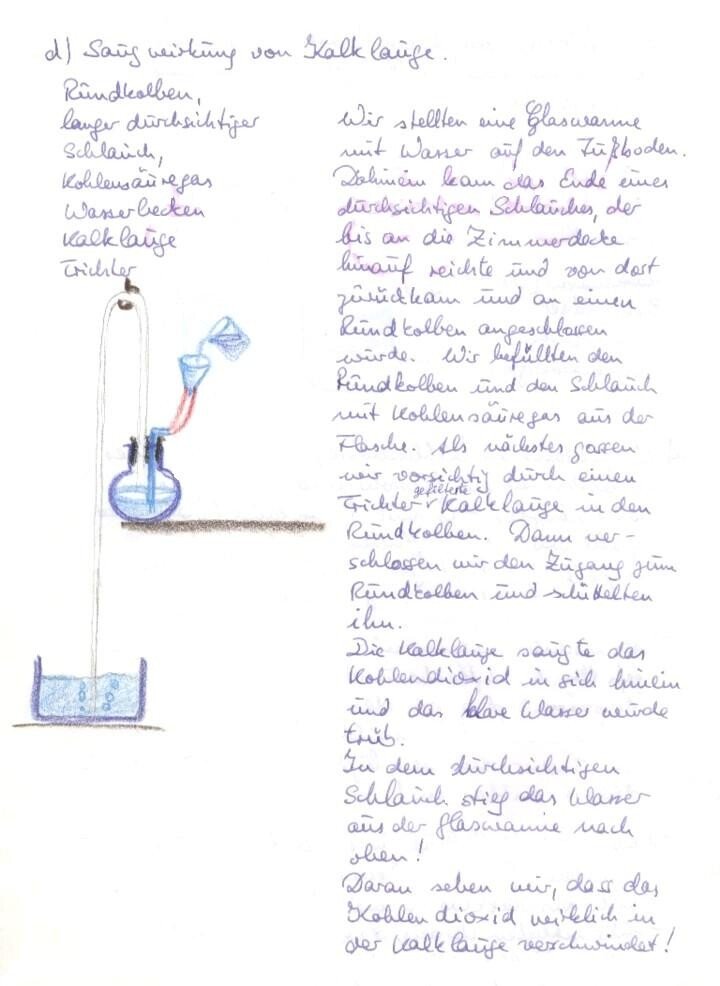 d) Saugwirkung von Kalklauge.
Rundkolben,
langer durchsichtiger
Schlauch,
Kohlensäuregas
Wasserbecken
Kalklauge
Trichter
Wir stellten eine Glaswanne
mit Wasser auf den Fußboden.
Dahinein kam das Ende eines
durchsichtigen Schlauches, der
bis an die Zimmerdecke
hinauf reichte und von dort
zurückkam und an einen
Rundkolben angeschlossen
wurde. Wir befüllten den
Rundkolben und den Schlauch
mit Kohlensäuregas aus der
Flasche. Als nächstes gossen
wir vorsichtig durch einen
Trichter gefilterte Kalklauge in den
Rundkolben. Dann ver-
schlossen wir den Zugang zum
Rundkolben und schüttelten
ihn.
Die Kalklauge saugte das
Kohlendioxid in sich hinein
und das klare Wasser wurde
trüb.
In dem durchsichtigen
Schlauch stieg das Wasser
aus der Glaswanne nach
oben!
Daran sehen wir, dass das
Kohlendioxid wirklich in
der Kalklauge verschwindet!